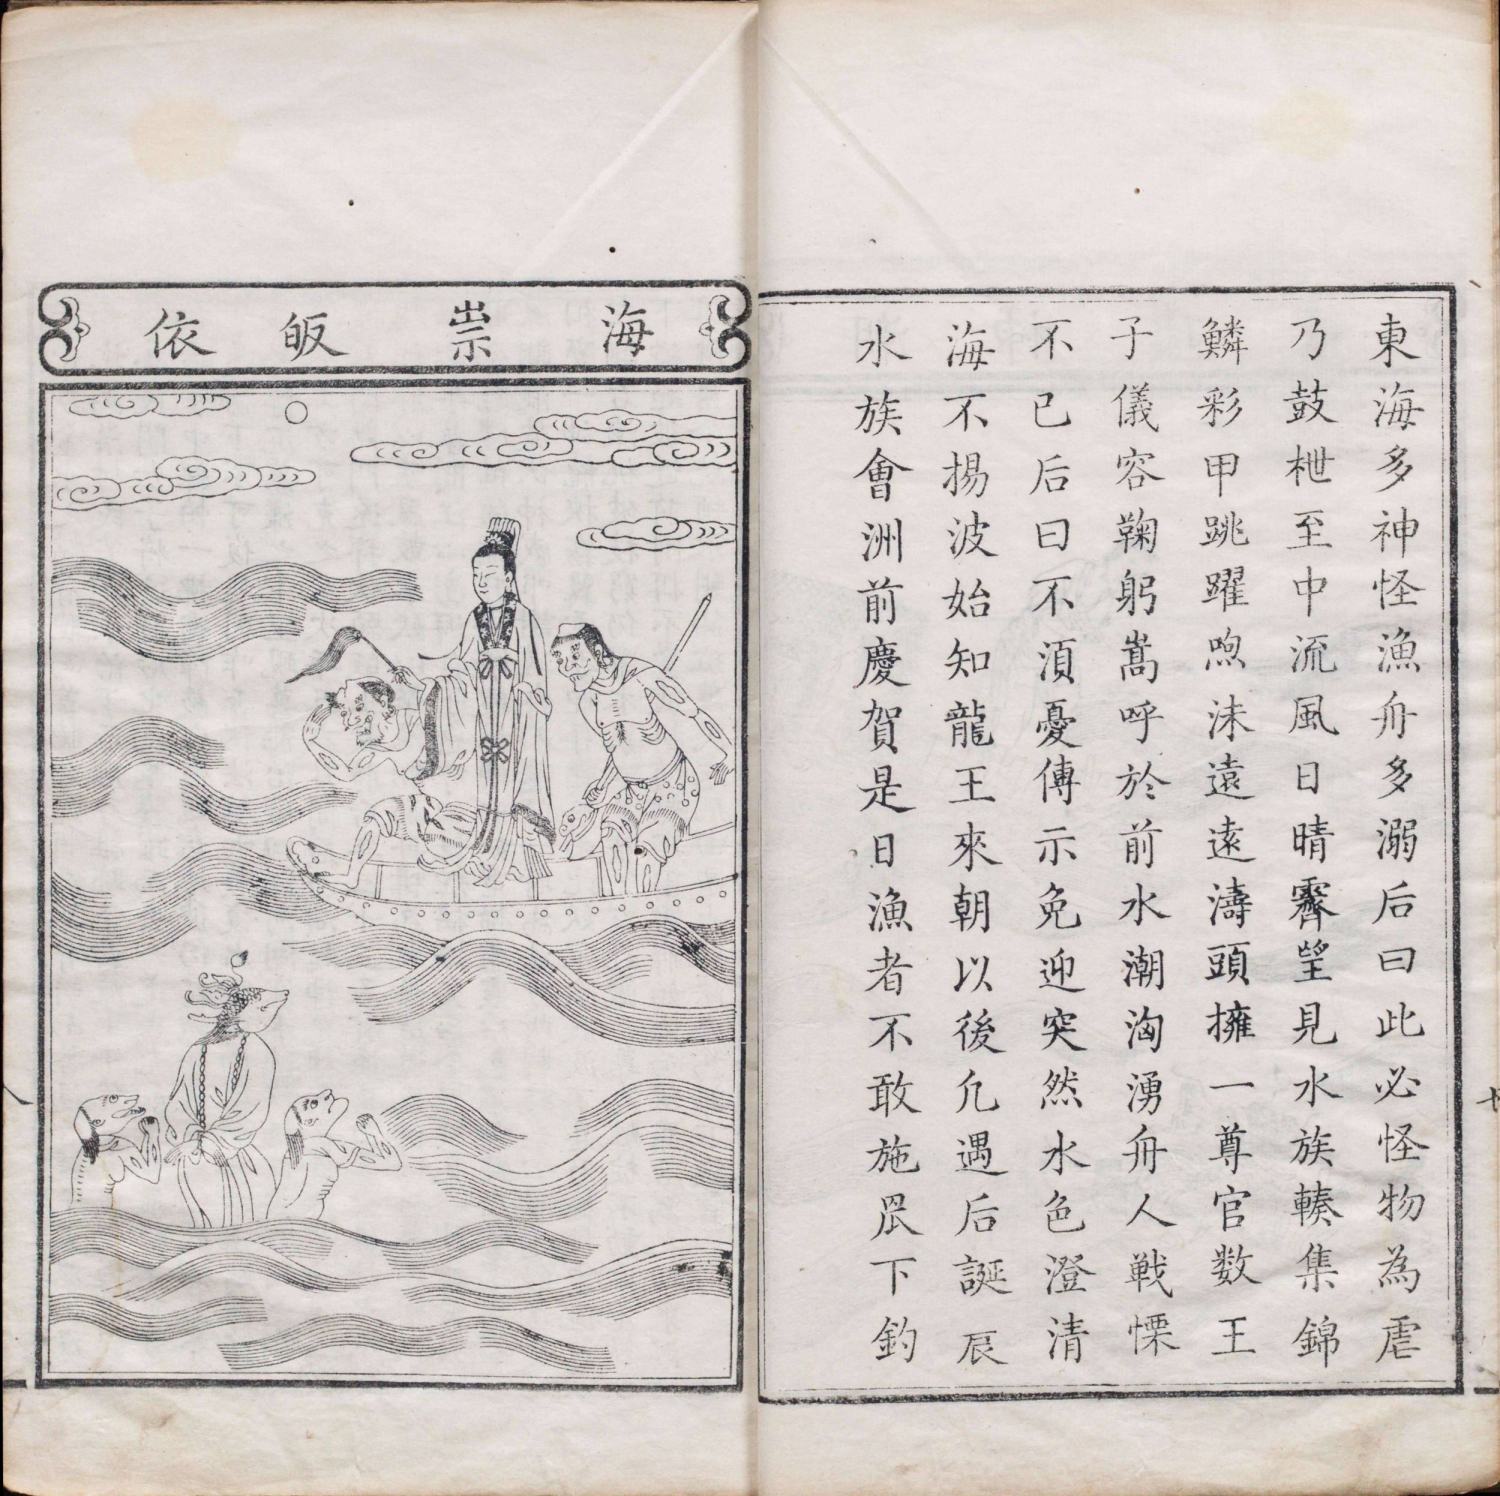 東海多神怪漁舟多溺后曰此必怪物為虐
乃鼓枻至中流風日晴霽望見水族輳集錦
鱗彩甲跳躍喣沬遠遠濤頭擁一尊官数王
子儀容鞠躬嵩呼於前水潮洶湧舟人戦慄
不已后曰不湏憂傳示免迎突然水色澄清
海不揚波始知龍王來朝以後凢遇后誕辰
水族會洲前慶賀是日漁者不敢施罛下釣
海祟皈依